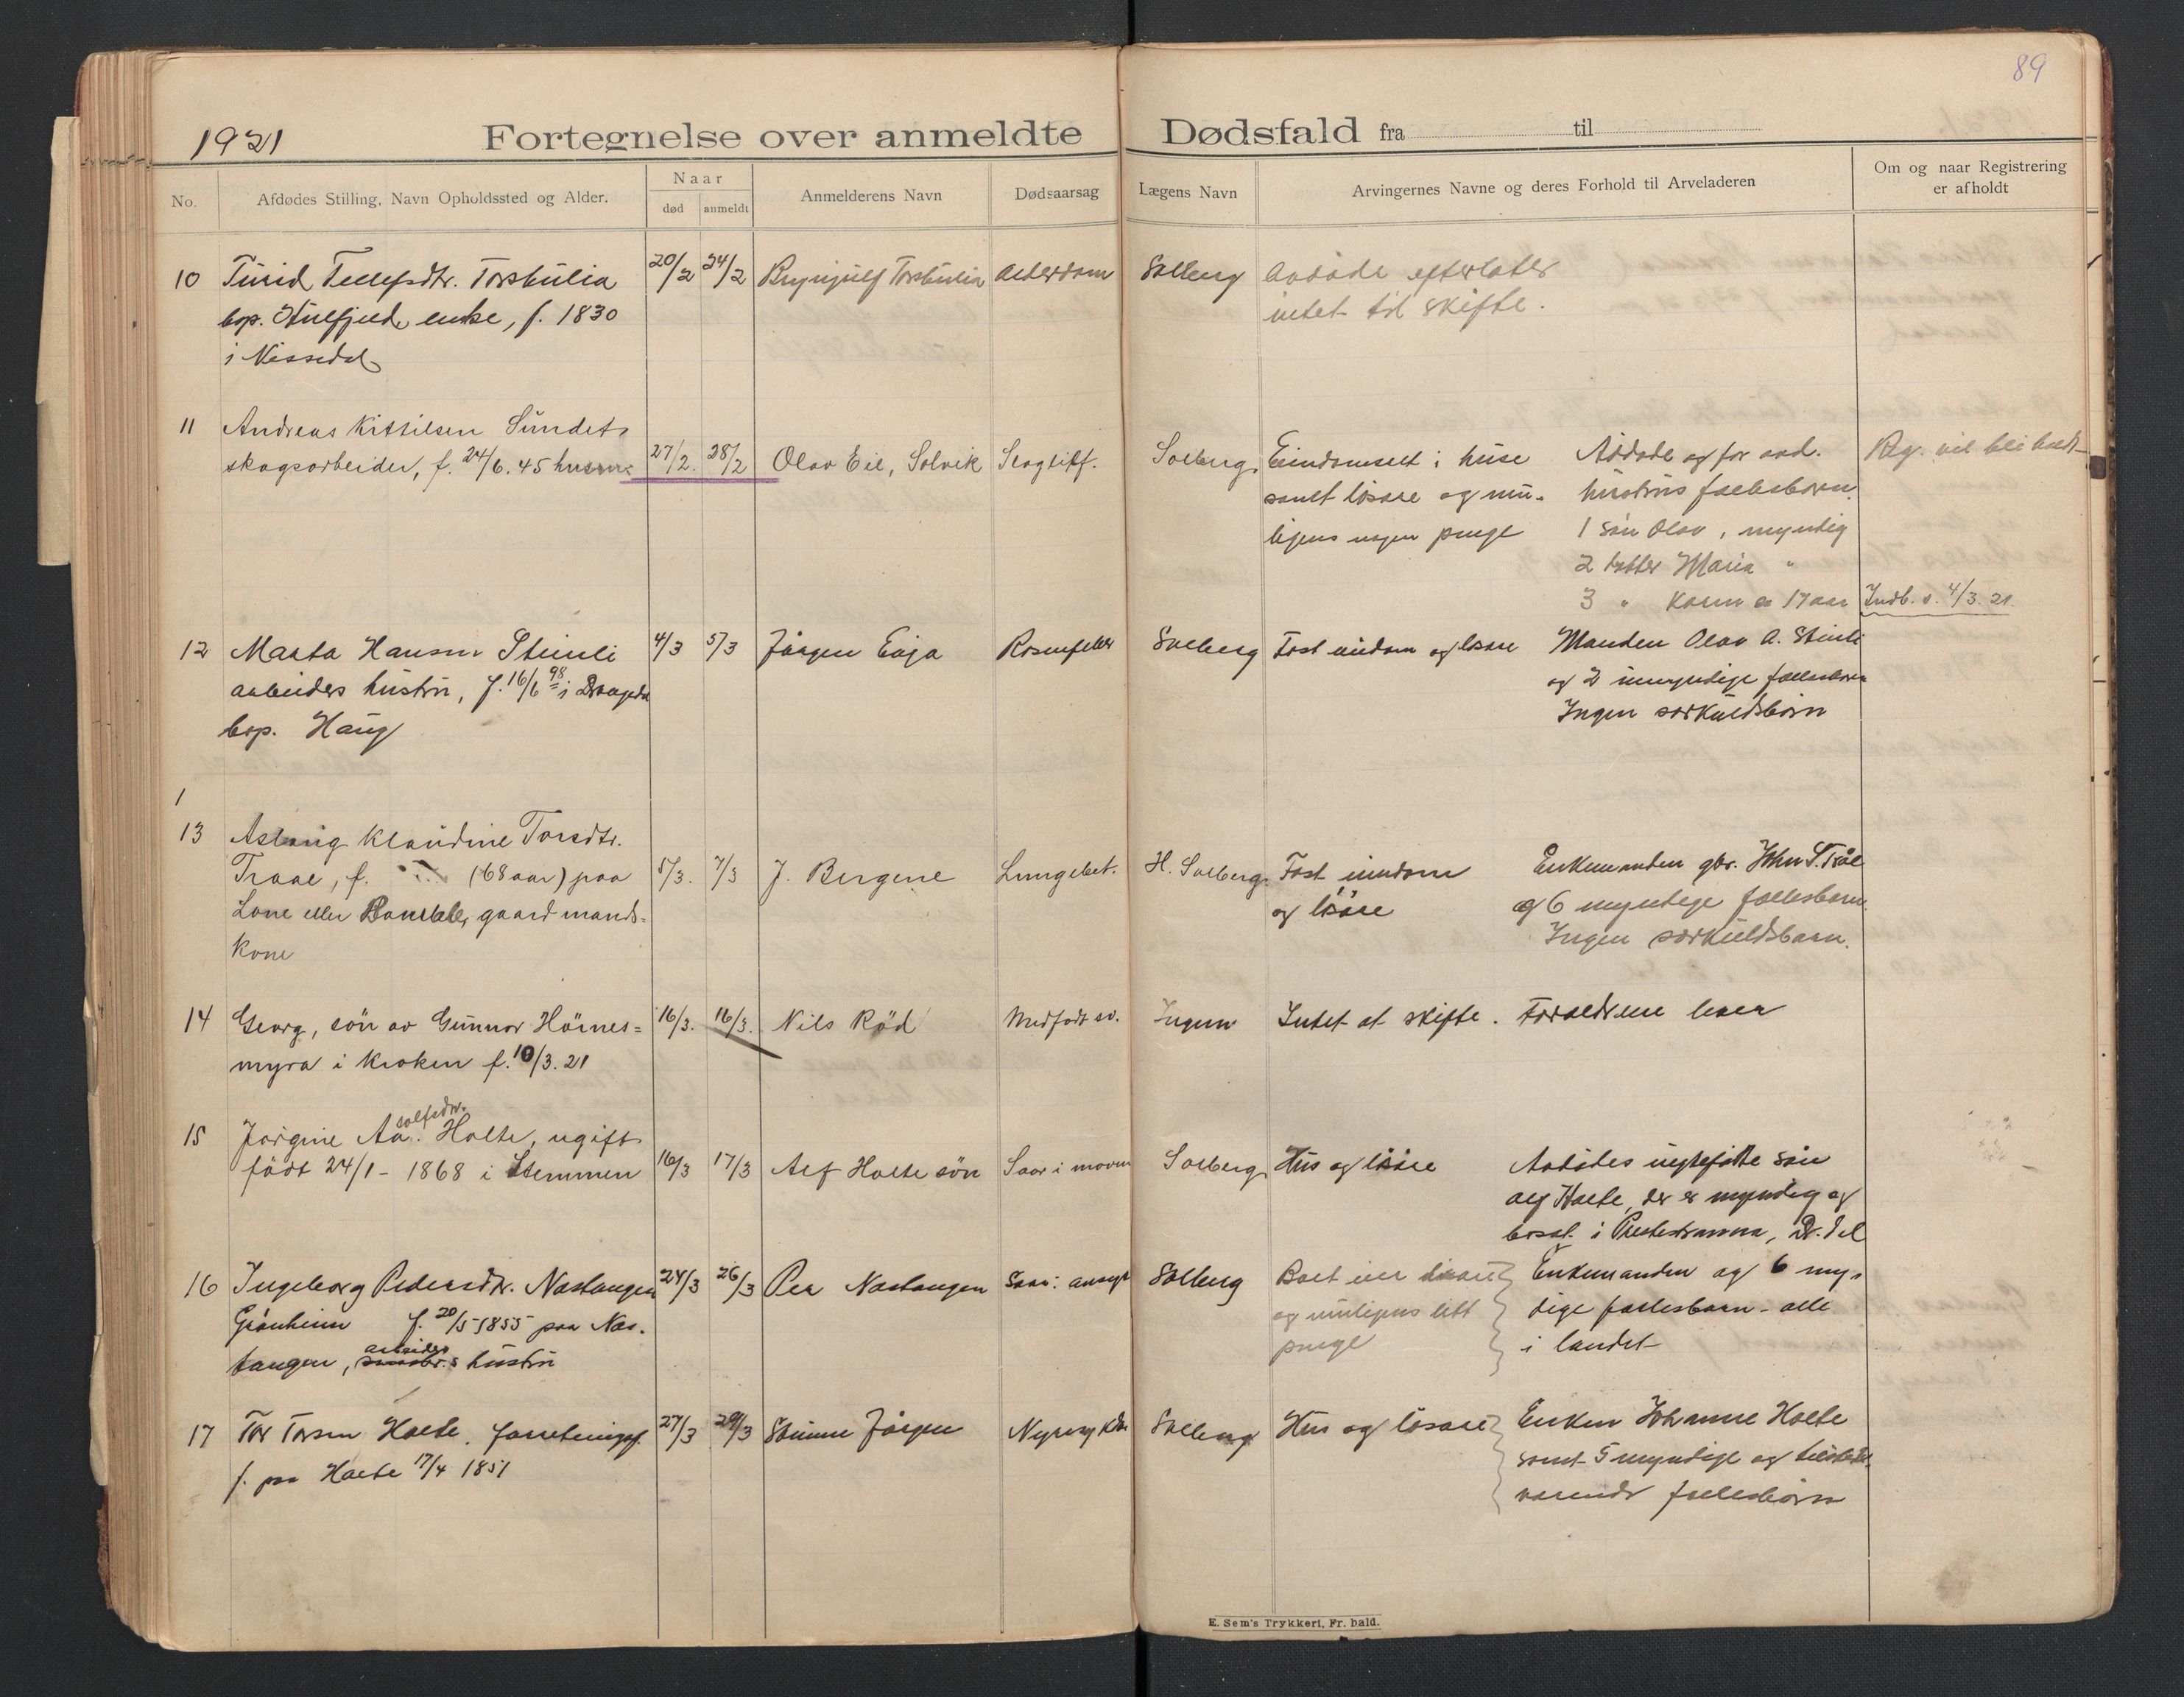 89
1921
Fortegnelse over anmeldte Dødsfald fra til
No.
Afdødes Stilling, Navn Opholdssted og Alder.
Naar
død
anmeldt
Anmelderens Navn
Dødsaarsag
Lægens Navn
Arvingernes Navne og deres Forhold til Arveladeren
Om og naar Registrering
er afholdt
10 Turid Tellefsdtr. Torsbulia 20/2 24/2 Brynjulf Torsbulia Alderdom Solberg Avdøde efterlater
bop. enke, f. 1830 intet til skifte.
i Nissedal
11 Andreas Kittilsen Sundet
skogsarbeider, f. 24/6. 45 27/2. 28/2 Olav Eie, Solvik Slagtilf. Solberg. Eiendomset i huse
samt løsøre og mu-
ligens nogen penge
Avdøde og før avd.
hustrus fællesbørn.
1 Søn Olav, myndig
2 datter Maria "
3 " Karen ca 17 aar
Reg. vil bli holdt
Indb. s. 4/3. 21.
12 Marta Hansen Stienli 4/3 5/3 Jørgen Eeja Rosenfeber Solberg Fast eiendom og løsøre Manden Olav A. Stienli
arbeiders hustru, f. 16/6 98 i Drangedal og 2 umyndige fællesbørn
bop. Haug Ingen særkuldsbørn
1
13 Aslaug Klaudine Torsdtr.
Traae, f. (68 aar) paa 5/3. 7/3 J. Bergene Lungebet. H. Solberg. Fast eiendom
Lone eller gaardmands-
kone
og løsøre
Enkemanden gbr. John S. Tråe
og 6 myndige fællesbarn.
Ingen særkuldsbarn.
14 Georg, søn av Gunnar Hörnes- 16/3. 16/3. Nils Rød Medfødt sv. Ingen Intet at skifte. Forældrene lever
myra i Kroken f. 10/3. 21
15 Jørgine Aa. Holte, ugift
solfsdtr.
født 24/1 - 1868 i Stemmen 16/3 17/3 Alf Holte søn Saar i maven Solberg Hus og løsøre
Avdødes uegtefødte søn
Alf Holte, der er myndig og
bosat i Prestestranna, Dr.dal
16 Ingeborg Pedersdtr. Nastangen 24/3 26/3 Per Nastangen Saar i ansigt Solberg Boet eier løsøre
Grønheim f. 20/5 1855 paa Nas- og muligens litt
tangen, arbeiders hustru penge
Enkemanden og 6 myn-
dige fællesbarn - alle
i landet
17 Tor Torsen Holte. forretningsf. 27/3 29/3 Stemme Jørgen Solberg Hus og løsøre
f. paa Holte 17/4 1851
Enken Johanne Holte
samt 5 myndige og tilstede-
værende fællesbörn
E. Sem's Trykkeri, Fr. hald.